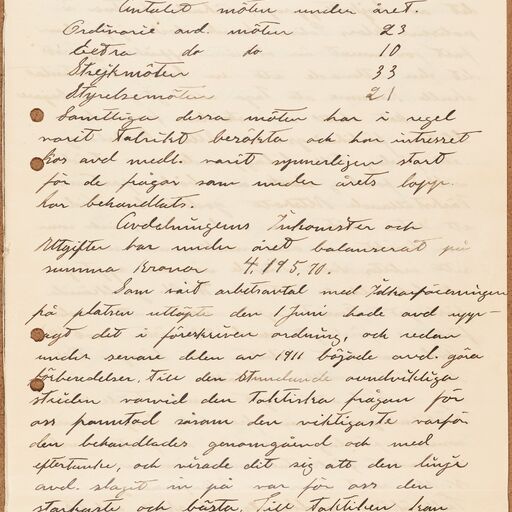 Antalet möten under året.
Ordinarie avd. möten 23
Extra do do 10
Strejkmöten 33
Styrelsemöten 21
Samtliga dessa möten har i regel
varit talrikt besökta och har intresset
hos avd medl. varit synnerligen stort
för de frågor som under årets lopp.
har behandlats.
Avdelningens Inkomster och
Utgifter har under året balanserat på
summa Kronor 4,195,70.
Som vårt arbetsavtal med
på platsen utlöpte den 1 Juni hade avd upp-
sagt det i föreskriven ordning, och redan
under senare delen av 1911 böjade avd. göra
förberedelser, till den stundande oundvikliga
striden varvid den taktiska frågan för
oss framstod såsom den viktigaste varför
den behandlades genomgåend och med
eftertanke, och visade det sig att den linje
avd. slagit in på var för oss den
starkaste och bästa. Till taktiken kan